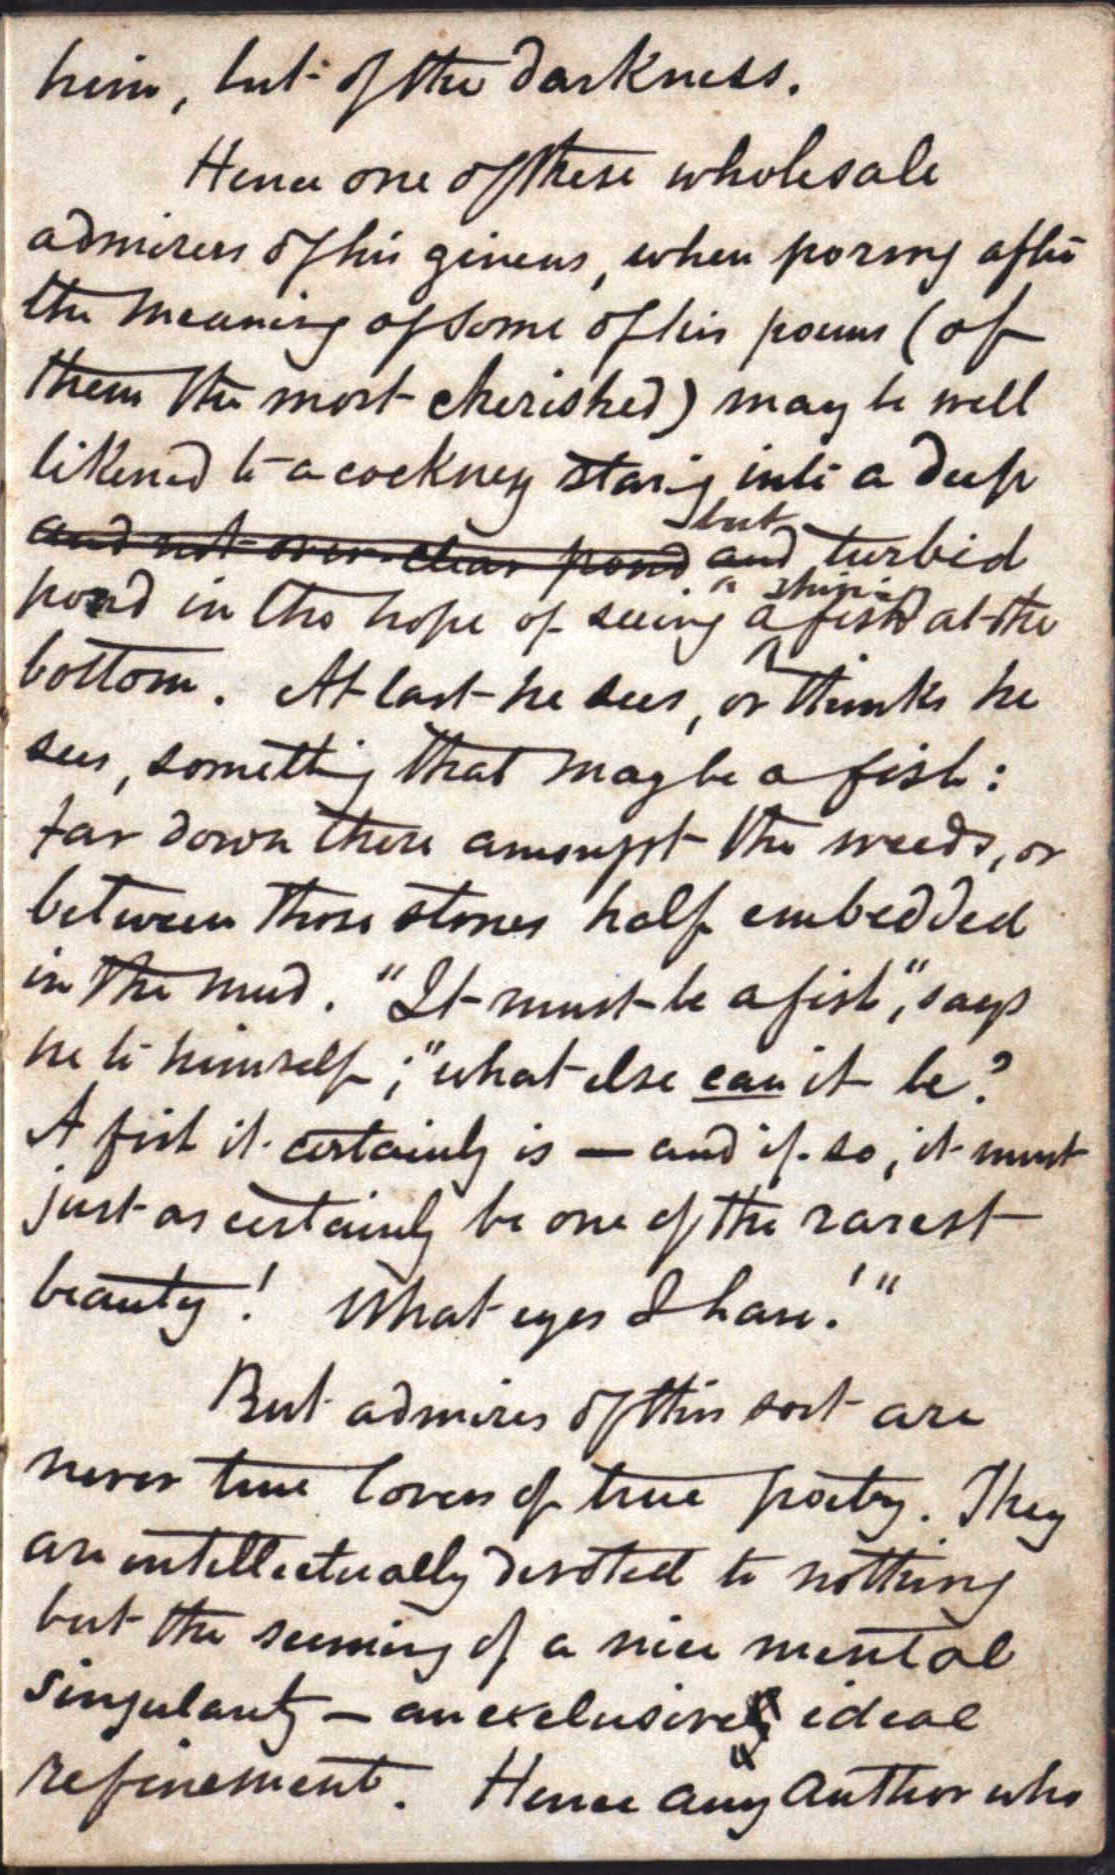 him, but of the darkness.
Hence one of these wholesale
admirers of his genius, when poring after
the meaning of some of his poems (of
them the most cherished) may be well
likened to a cockney staring into a deep
and not over-clear pond but and turbid
shining
pond in the hope of seeing a fish at the
bottom. At last he sees, or thinks he
sees, something that may be a fish:
far down there amongst the weeds, or
between those stones half embedded
in the mud. "It must be a fish", says
he to himself; "what else can it be?
A fish it certainly is — and if so, it must
just as certainly be one of the rarest
beauty! What eyes I have!"
But admirers of this sort are
never true lovers of true poetry. They
are intellectually devoted to nothing
but the seeming of a nice mental
singularity — an exclusively ideal
refinement. Hence any author who